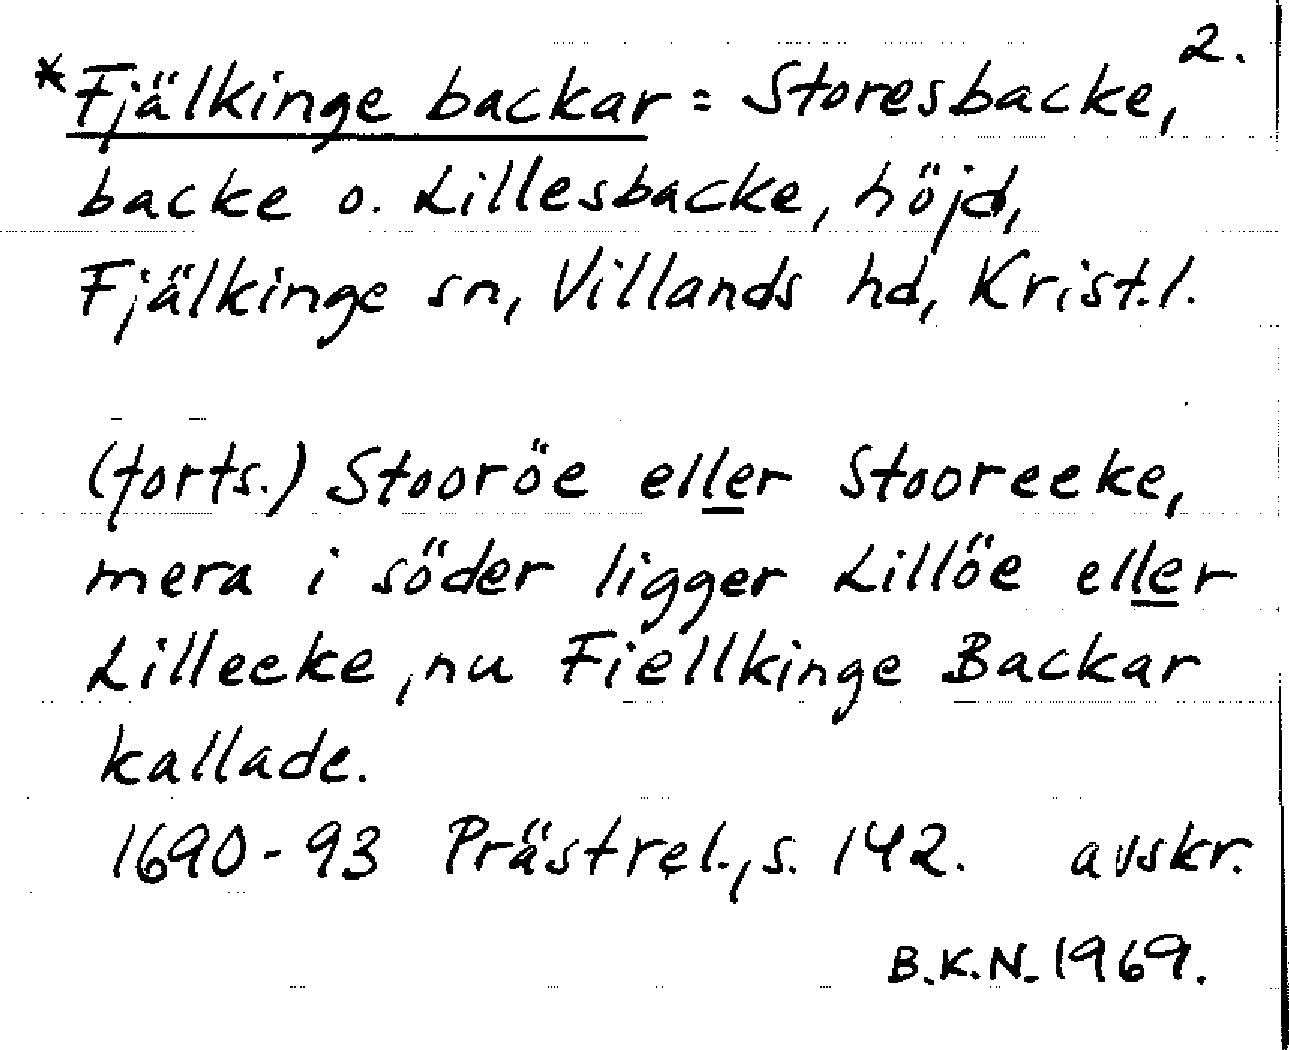 2.
*Fjälkinge backar = Storesbacke,
backe o. Lillesbacke, höjd,
Fjälkinge sn, Villands hd, Krist.l.
(forts.) Stooröe eller Stooreeke,
mera i söder ligger Lillöe eller
Lilleeke, nu Fiellkinge Backar
kallade.
1690-93 Prästrel., s. 142. avskr.
B.K.N. 1969.